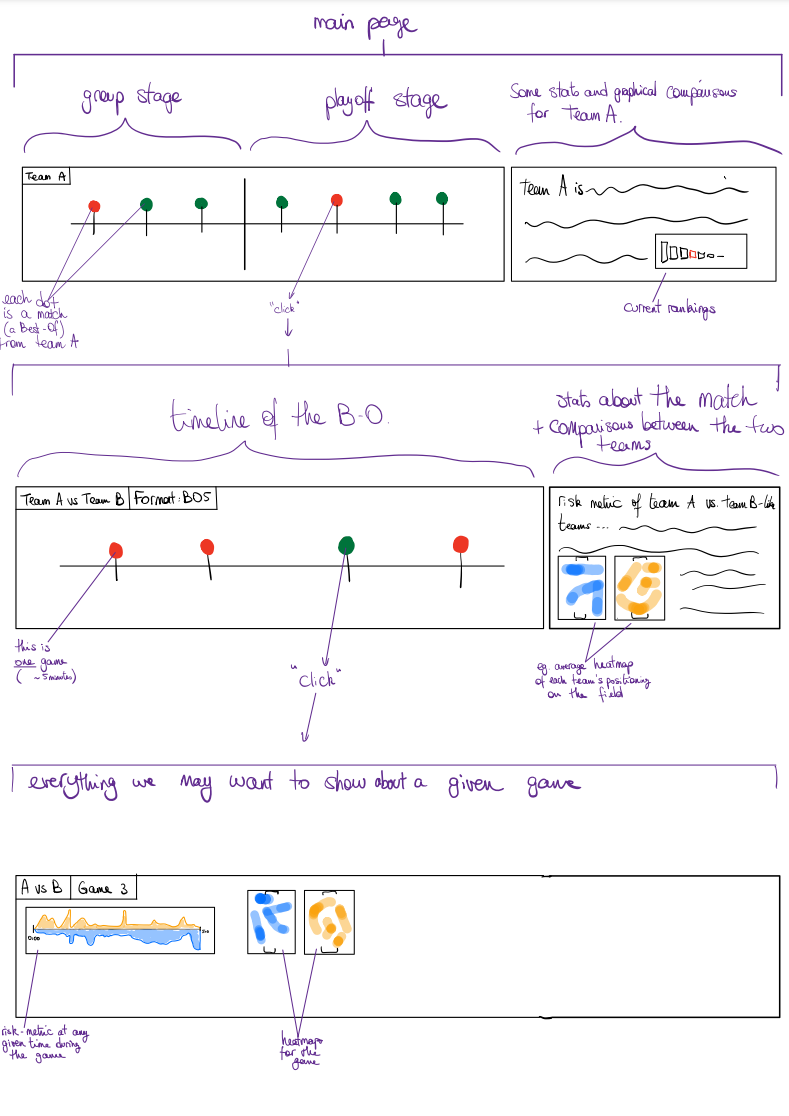 main page
group stage
playoff stage
Some stats and graphical comparisons
for Team A.
Team A
team A is
each dot
is a match
(a Best-Of)
from team A
"click"
current rankings
timeline of the B-O.
stats about the match
+ comparisons between the two
teams
Team A vs Team B
Format: BO5
risk metric of team A vs. team B-like
teams ...
this is
one game
( ~5minutes)
"click"
eg. average heatmap
of each team's positioning
on the field
everything we may want to show about a given game
A vs B
Game 3
0:00
risk-metric at any
given time during
the game
heatmaps
for the
game